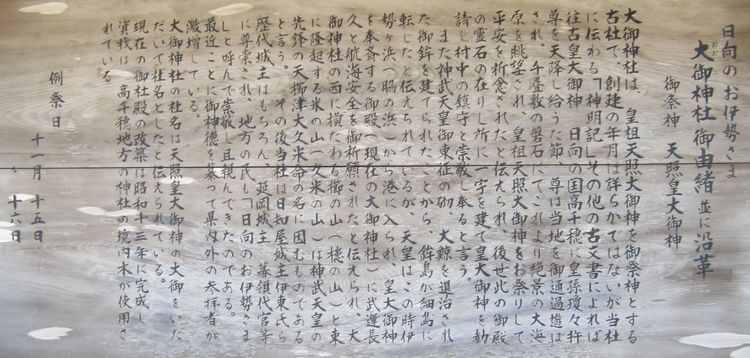 日向のお伊勢さま
大御神社御由緒並に沿革
おお
御祭神 天照皇大御神
大御神社は、皇祖天照大御神を御祭神とする
古社で、創建の年月は詳らかではないが当社
に伝わる「神明記」その他の古文書によれば
往古皇大御神、日向の国高千穂に皇孫瓊々杵
尊を天降し給うた節、尊は当地を御通過遊ば
され、千畳敷の磐石にてこれより絶景の大海
原を眺望され、皇祖天照大御神をお祭りして
平安を祈念されたと伝えられ、後世此の御殿
の霊石の在りし所に一宇を建て皇大御神を勧
請し村中の鎮守と崇敬し奉ると言う。
また神武天皇御東征の砌、大鯨を退治され
た御鉾を建てられたことから、鉾島が細島に
転じたと伝えられているが、天皇はこの時伊
勢ヶ浜(脇の浜)から港に入られ、皇大御神
を奉斎する御殿(現在の大御神社)に武運長
久と航海安全を御祈願されたと伝えられ、大
御神社の西に損たわる櫛の山(樵の山)と東
に隆起する米の山(久米の山)は神武天皇の
先鋒の天櫛津大久米命の名に因むものである
と言う。その後当社は日知屋城主伊東氏ら
歴代城主はもちろん、延岡城主、幕領代官等
に尊崇され、地方の氏も「日向のお伊勢さま」
しと呼んで崇敬し且親しんできたのである。
最近ことに御神徳を慕って県内外の参拝者が
激増している。
大御神社の社名は天照皇大御神の大御をいた
だいて社名としたと伝えられている。
現在の御社殿の改築は昭和十三年に完成し
資材は、高千穂地方の神社の境内木が使用さ
れている。
例祭日 十一月 十五日
〃 十六日